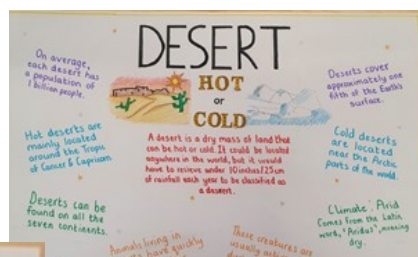 DESERT
HOT
or
COLD
On average,
each desert has
a population of
1 billion people.
Hot deserts are
mainly located
around the Tropic
of Cancer & Capricorn.
Deserts can be
found on all the
seven continents.
A desert is a dry mass of land that
can be hot or cold. It could be located
anywhere in the world, but it would
have to recieve under 10 inches/25cm
of rainfall each year to be classified as
a dessert.
Deserts cover
approximately one
fifth of the Earth's
surface.
Cold deserts
are located
near the Arctic
parts of the world.
Climate: Arid
Comes from the Latin
word, "Aridus", meaning
dry.
Animals living in
have quickly
These creatures are
usually